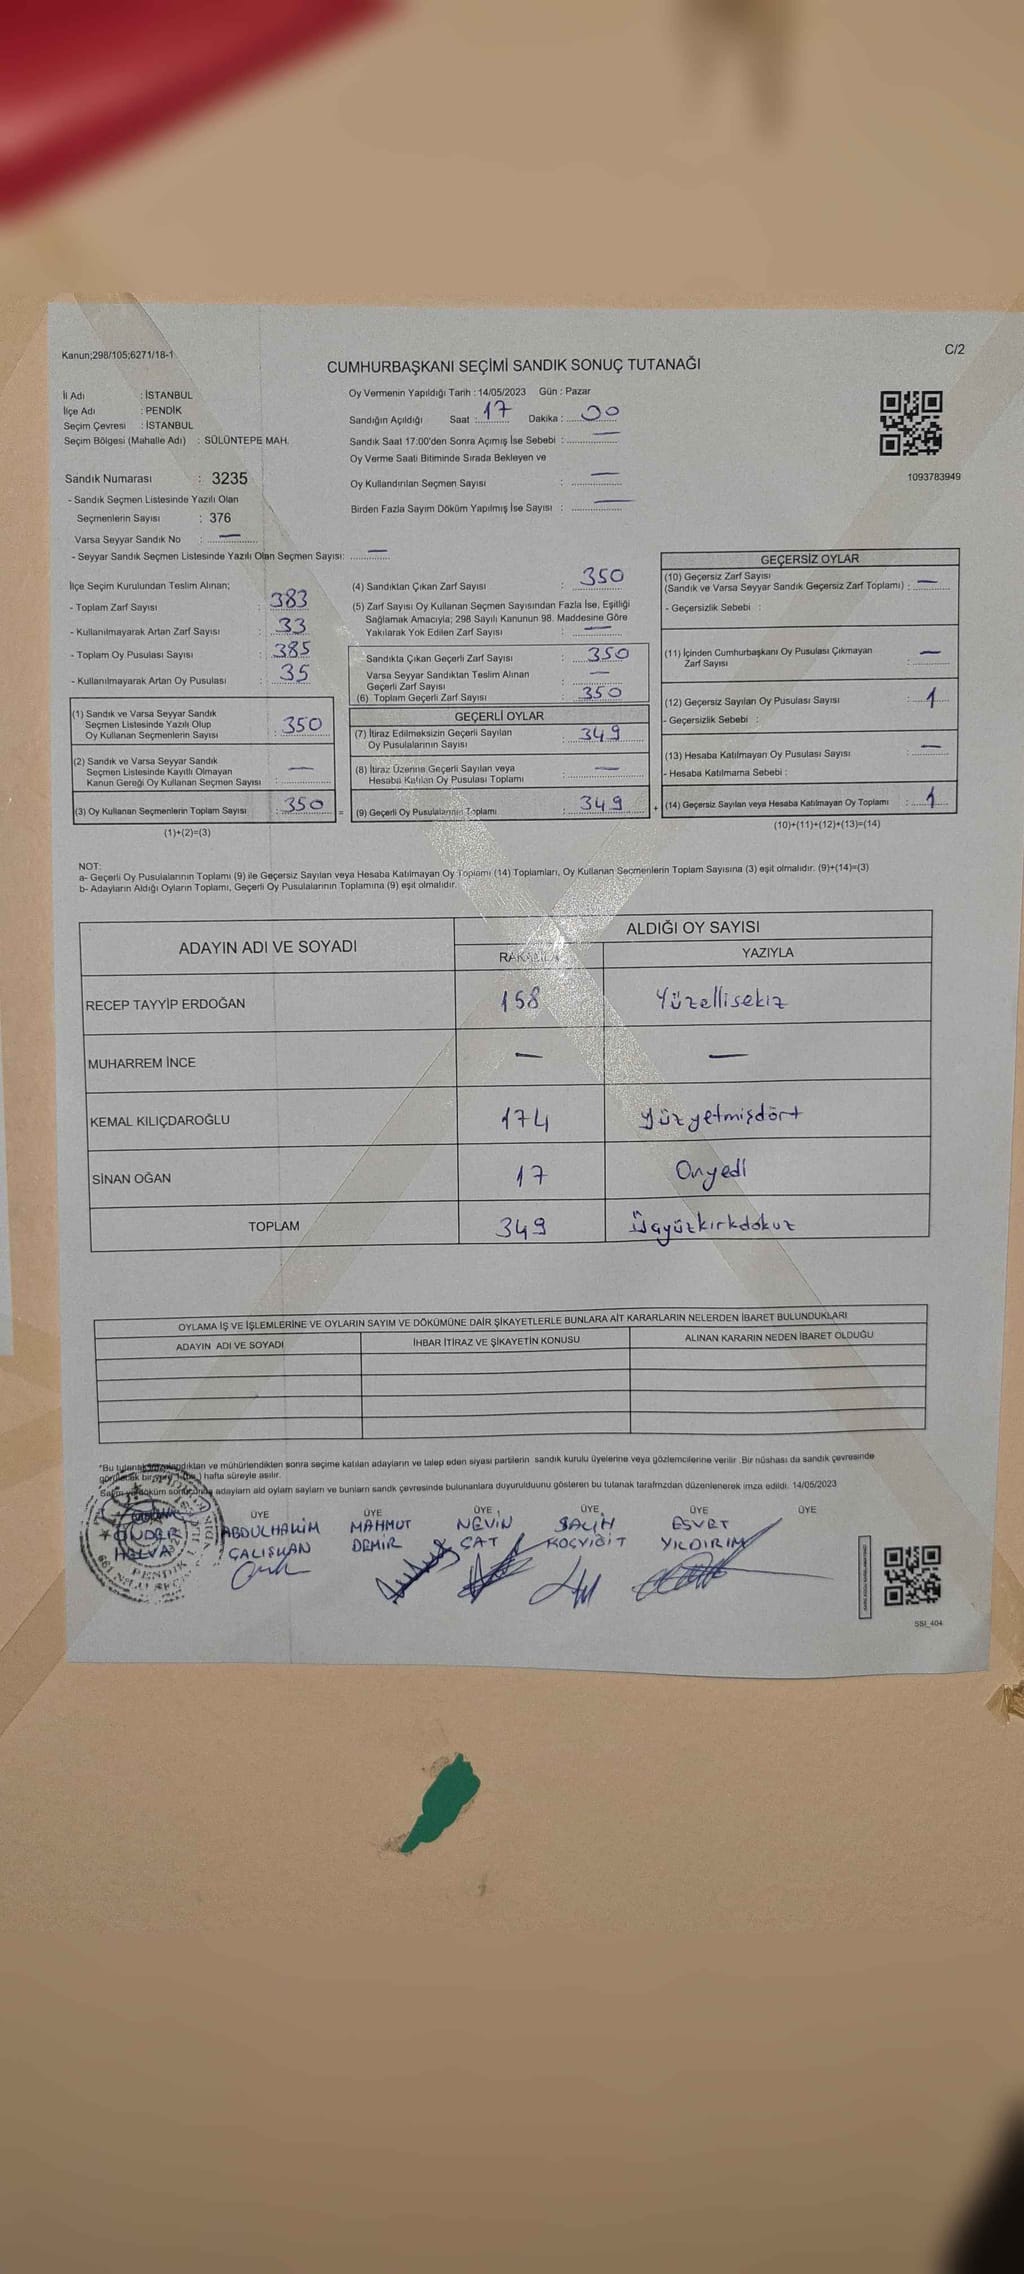 Kanun;298/105;6271/18-1
C/2
CUMHURBAŞKANI SEÇİMİ SANDIK SONUÇ TUTANAĞI
İl Adı : İSTANBUL
İlçe Adı : PENDİK
Seçim Çevresi : İSTANBUL
Seçim Bölgesi (Mahalle Adı) : SÜLÜNTEPE MAH.
Oy Vermenin Yapıldığı Tarih : 14/05/2023 Gün : Pazar
Sandığın Açıldığı Saat : 17 Dakika : 00
Sandık Saat 17:00'den Sonra Açımış İse Sebebi : —
Oy Verme Saati Bitiminde Sırada Bekleyen ve
Oy Kullandırılan Seçmen Sayısı : —
Birden Fazla Sayım Döküm Yapılmış İse Sayısı : —
1093783949
Sandık Numarası : 3235
- Sandık Seçmen Listesinde Yazılı Olan
Seçmenlerin Sayısı : 376
Varsa Seyyar Sandık No : —
- Seyyar Sandık Seçmen Listesinde Yazılı Olan Seçmen Sayısı: —
İlçe Seçim Kurulundan Teslim Alınan;
- Toplam Zarf Sayısı : 383
- Kullanılmayarak Artan Zarf Sayısı : 33
- Toplam Oy Pusulası Sayısı : 385
- Kullanılmayarak Artan Oy Pusulası : 35
(1) Sandık ve Varsa Seyyar Sandık
Seçmen Listesinde Yazılı Olup
Oy Kullanan Seçmenlerin Sayısı : 350
(2) Sandık ve Varsa Seyyar Sandık
Seçmen Listesinde Kayıtlı Olmayan
Kanun Gereği Oy Kullanan Seçmen Sayısı : —
(3) Oy Kullanan Seçmenlerin Toplam Sayısı : 350 =
(1)+(2)=(3)
(4) Sandıktan Çıkan Zarf Sayısı : 350
(5) Zarf Sayısı Oy Kullanan Seçmen Sayısından Fazla İse, Eşitliği
Sağlamak Amacıyla; 298 Sayılı Kanunun 98. Maddesine Göre
Yakılarak Yok Edilen Zarf Sayısı : —
Sandıkta Çıkan Geçerli Zarf Sayısı : 350
Varsa Seyyar Sandıktan Teslim Alınan
Geçerli Zarf Sayısı : —
(6) Toplam Geçerli Zarf Sayısı : 350
GEÇERLİ OYLAR
(7) İtiraz Edilmeksizin Geçerli Sayılan
Oy Pusulalarının Sayısı : 349
(8) İtiraz Üzerine Geçerli Sayılan veya
Hesaba Katılan Oy Pusulası Toplamı : —
(9) Geçerli Oy Pusulalarının Toplamı : 349 +
GEÇERSİZ OYLAR
(10) Geçersiz Zarf Sayısı
(Sandık ve Varsa Seyyar Sandık Geçersiz Zarf Toplamı) : —
- Geçersizlik Sebebi :
(11) İçinden Cumhurbaşkanı Oy Pusulası Çıkmayan
Zarf Sayısı : —
(12) Geçersiz Sayılan Oy Pusulası Sayısı : 1
- Geçersizlik Sebebi :
(13) Hesaba Katılmayan Oy Pusulası Sayısı : —
- Hesaba Katılmama Sebebi :
(14) Geçersiz Sayılan veya Hesaba Katılmayan Oy Toplamı : 1
(10)+(11)+(12)+(13)=(14)
NOT:
a- Geçerli Oy Pusulalarının Toplamı (9) ile Geçersiz Sayılan veya Hesaba Katılmayan Oy Toplamı (14) Toplamları, Oy Kullanan Seçmenlerin Toplam Sayısına (3) eşit olmalıdır. (9)+(14)=(3)
b- Adayların Aldığı Oyların Toplamı, Geçerli Oy Pusulalarının Toplamına (9) eşit olmalıdır.
ADAYIN ADI VE SOYADI
ALDIĞI OY SAYISI
RAKAMLA YAZIYLA
RECEP TAYYİP ERDOĞAN 158 Yüzellisekiz
MUHARREM İNCE — —
KEMAL KILIÇDAROĞLU 174 Yüzyetmişdört
SİNAN OĞAN 17 Onyedi
TOPLAM 349 Üçyüzkırkdokuz
OYLAMA İŞ VE İŞLEMLERİNE VE OYLARIN SAYIM VE DÖKÜMÜNE DAİR ŞİKAYETLERLE BUNLARA AİT KARARLARIN NELERDEN İBARET BULUNDUKLARI
ADAYIN ADI VE SOYADI İHBAR İTİRAZ VE ŞİKAYETİN KONUSU ALINAN KARARIN NEDEN İBARET OLDUĞU
*Bu tutanak imzalandıktan ve mühürlendikten sonra seçime katılan adayların ve talep eden siyasi partilerin sandık kurulu üyelerine veya gözlemcilerine verilir .Bir nüshası da sandık çevresinde
hafta süreyle asılır.
adayların ald oyların sayları ve bunların sandık çevresinde bulunanlara duyurulduunu gösteren bu tutanak tarafmzdan düzenlenerek imza edildi. 14/05/2023
ÜYE ÜYE ÜYE ÜYE ÜYE ÜYE
ÖNDER ABDULHAKİM MAHMUT NEVİN SALİH ESVET
HELVA ÇALIŞKAN DEMİR ÇAT KOÇYİĞİT YILDIRIM
PENDİK
SSI_404